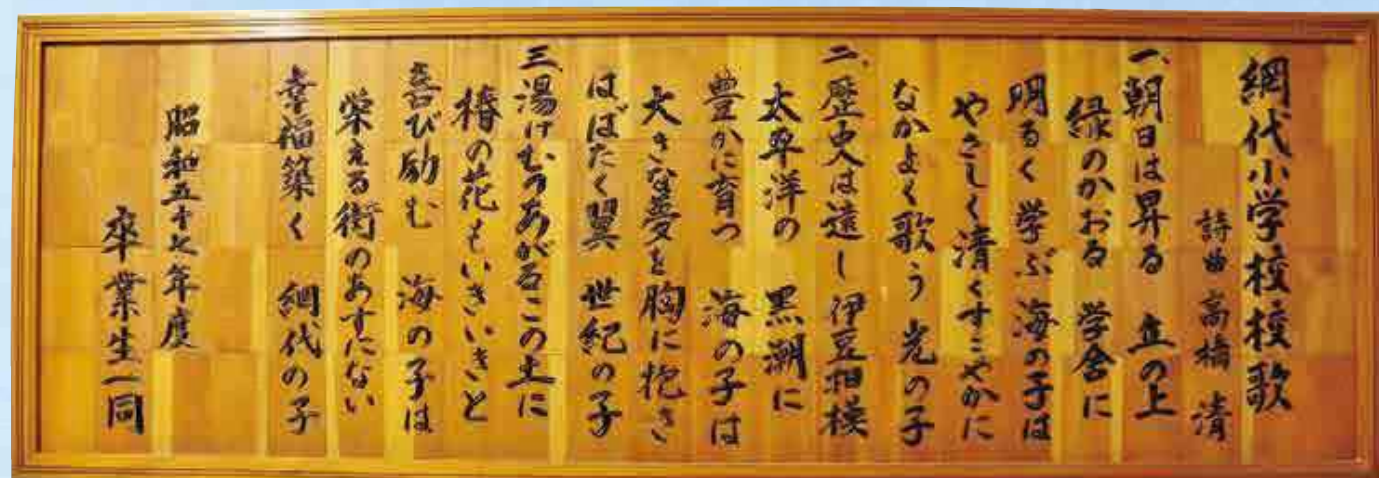 網代小学校校歌
詩曲 高橋 清
一、朝日は昇る 丘の上
緑のかおる 学舎に
明るく学ぶ 海の子は
やさしく清くすこやかに
なかよく歌う 光の子
二、歴史は遠し 伊豆相模
太平洋の 黒潮に
豊かに育つ 海の子は
大きな夢を胸に抱き
はばたく翼 世紀の子
三、湯けむりあがるこの土に
椿の花もいきいきと
喜び励む 海の子は
栄える街のあすにない
幸福築く 網代の子
昭和五十七年度
卒業生一同